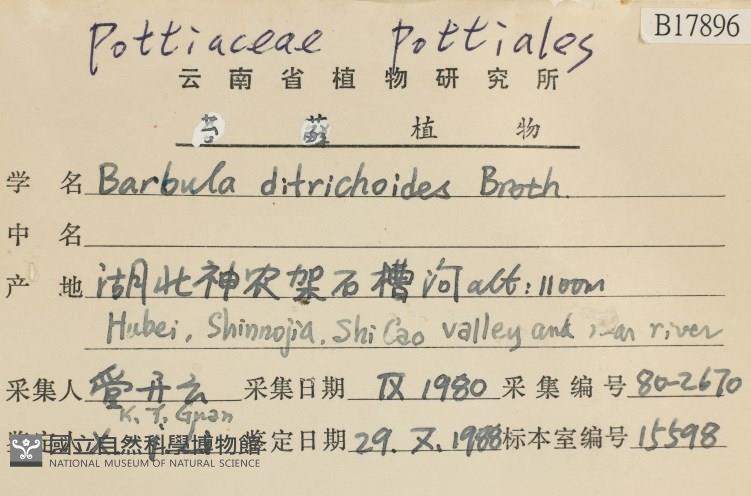 B17896
Pottiaceae Pottiales
云南省植物研究所
苔藓植物
学名 Barbula ditrichoides Broth.
中名
产地 湖北神农架石槽河 alt: 1100m
Hubei, Shinnojia, Shi Cao valley and near river
采集人 管开云 采集日期 IX 1980 采集编号 80-2670
K. Y. Guan
鉴定人 鉴定日期 29. X. 1988 标本室编号 15598
國立自然科學博物館
NATIONAL MUSEUM OF NATURAL SCIENCE